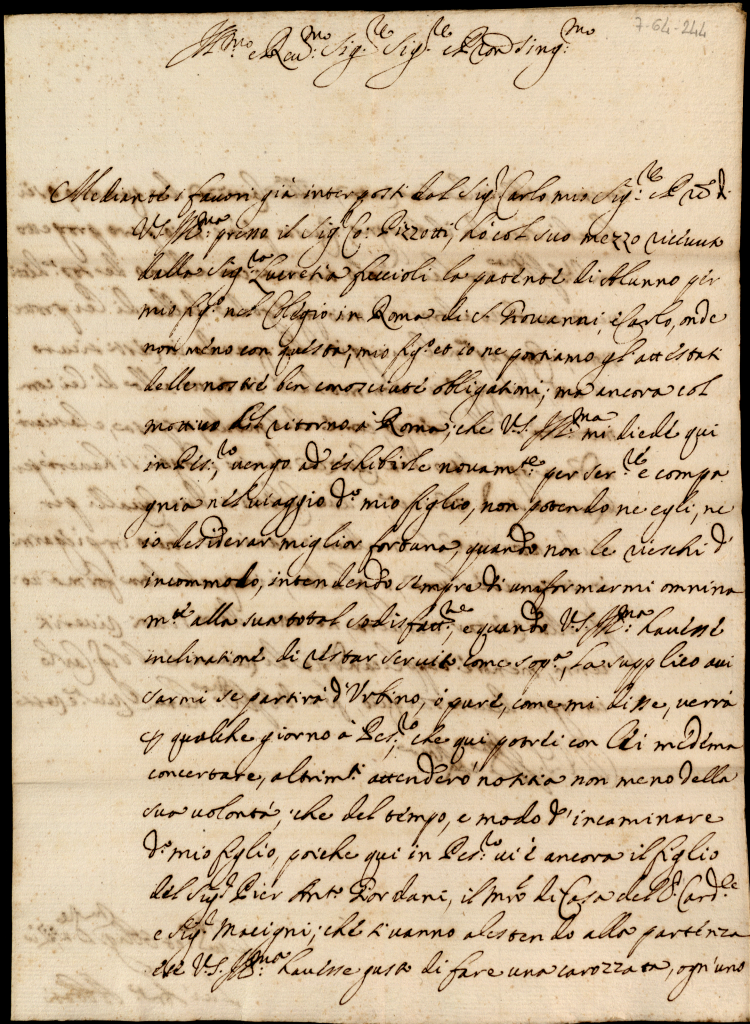 7-64-244
Ill.mo e Reu.mo Sig.re Sig.re e Pron Sing.mo
Mediante i fauori già interposti dal Sig.r Carlo mio Sig.re e P.rone di
V.S. Ill.ma presso il Sig.r Co: Pizzotti, hò col suo mezzo riceuuta
dalla Sig.ra Lucretia la patente di Alunno per
mio fig.o nel Collegio in Roma di S. Giouanni, e Carlo, onde
non meno con questa, mio fig.o et io ne portiamo gl'attestati
delle nostre ben conosciute obligationi; ma ancora col
motiuo del ritorno à Roma, che V.S. Ill.ma mi diede qui
in Pes.ro, uengo ad eshibirle nouam.te per ser.re e compa
gnia nel uiaggio d.o mio figlio, non potendo ne egli, ne
io desiderar miglior fortuna, quando non le rieschi d'
incommodo, intendendo sempre di uniformarmi omnina
m.te alla sua total sodisfatt.ne, e quando V.S. Ill.ma hauesse
inclinatione di restar seruita come sop.a, la supplico aui
sarmi se partirà d'Vrbino, ò pure, come mi disse, verrà
p qualche giorno à Pes.ro, che qui potrei con Lei medema
concertare, altrim.ti attenderò notitia non meno della
sua uolontà, che del tempo, e modo d'incaminare
d.o mio figlio, poiche qui in Pes.ro ui è ancora il figlio
del Sig.r Pier Ant.o Giordani, il Mro di Casa dell'E. Card.le
e Sig.r Macigni, che si uanno alestendo alla partenza
se V.S. Ill.ma hauesse gusto di fare una carozzata, ogn'uno